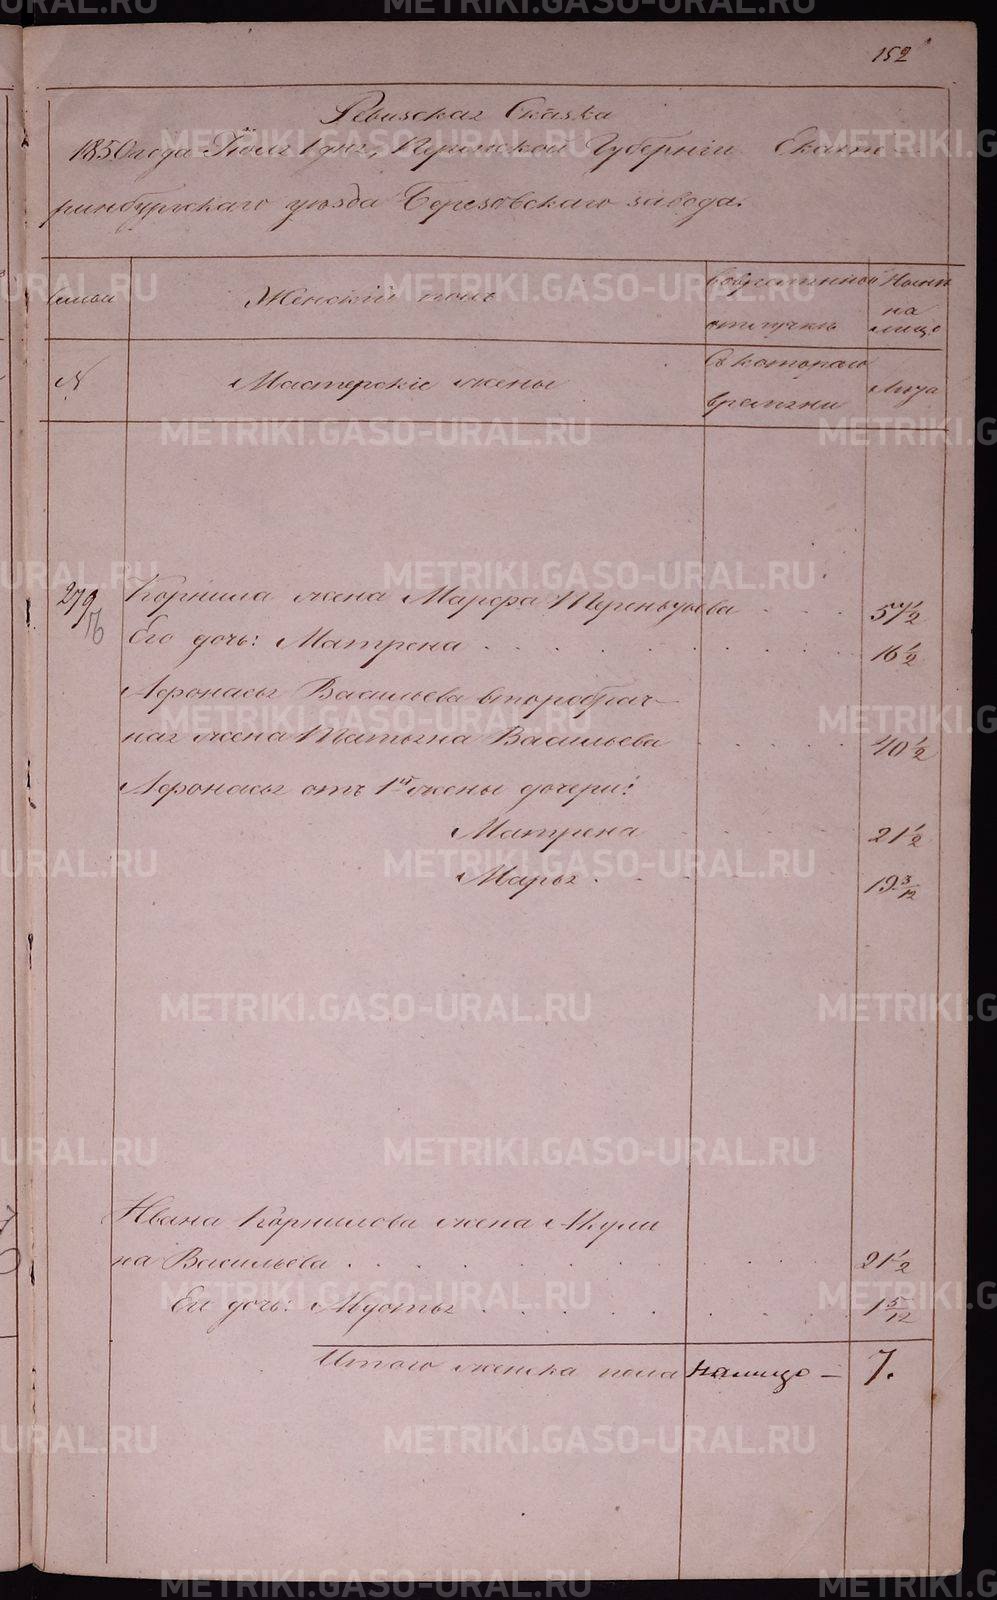 152
Ревизская Сказка
1850 года Іюля 1 дня, Пермской Губерніи Екате-
ринбургскаго уезда Березовскаго завода.
Семьи
Женскій полъ
Во временной
отлучкѣ
Ныне
на
лицо
№
Мастерскіе жены
Съ котораго
времяни
Лѣта
279
76
Корнила жена Марфа Терентьева . . . 57 1/2
Его дочь: Матрена . . . 16 1/2
Афонасья Васильева второбрач-
ная жена Татьяна Васильева . . . 40 1/2
Афонасья отъ 1й жены дочери:
Матрена . . . 21 1/2
Марья . . . 19 3/12
Ивана Корнилова жена Акули
на Васильева . . . 21 1/2
Ея дочь: . . . 1 5/12
Итого женска пола налицо — 7.
METRIKI.GASO-URAL.RU